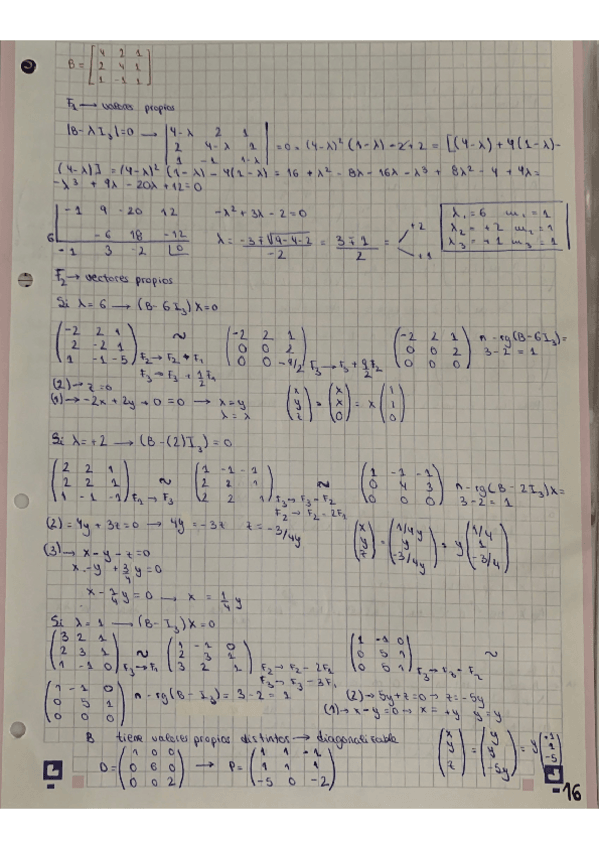 B = [4 2 1; 2 4 1; 1 -1 1]
F₁ → valores propios
|B-λI₃|=0 → |4-λ 2 1; 2 4-λ 1; 1 -1 1-λ| =0= (4-λ)² (1-λ) -2+2 = [(4-λ) + 4(1-λ)-
(4-λ)] = (4-λ)² (1-λ) - 4(1-λ) = 16 + λ² - 8λ - 16λ - λ³ + 8λ² - 4 + 4λ=
-λ³ + 9λ - 20λ + 12 = 0
-1 9 -20 12
6 -6 18 -12
-1 3 -2 0
-λ² + 3λ - 2 = 0
λ = (-3∓√(9-4·2))/(-2) = (3∓1)/2 = +2 +1
λ₁ = 6 m₁ = 1
λ₂ = +2 m₂ = 1
λ₃ = +1 m₃ = 1
F₂ → vectores propios
Si λ = 6 → (B-6I₃)X=0
(-2 2 1; 2 -2 1; 1 -1 -5) F₂→F₂+F₁ F₃→F₃+½F₁ ~ (-2 2 1; 0 0 2; 0 0 -9/2) F₃→F₃+9/2F₂ (-2 2 1; 0 0 2; 0 0 0) n-rg(B-6I₃)=
3-2 = 1
(2) → z=0
(1) → -2x + 2y + 0 = 0 → x=y
(x; y; z) = (x; x; 0) = x (1; 1; 0)
Si λ = +2 → (B-(2)I₃) = 0
(2 2 1; 2 2 1; 1 -1 -1) F₁→F₃ ~ (1 -1 -1; 2 2 1; 2 2 1) F₃→F₃-F₂ F₂→F₂-2F₁ ~ (1 -1 -1; 0 4 3; 0 0 0) n-rg(B-2I₃)X=
3-2 = 1
(2) = 4y + 3z = 0 → 4y = -3z z = -3/4y
(x; y; z) = (1/4y; y; -3/4y) = y (1/4; 1; -3/4)
(3) → x-y-z=0
x-y + 3/4 y = 0
y = 0 → x = 1/4 y
Si λ = 1 → (B-I₃)X=0
(3 2 1; 2 3 1; 1 -1 0) F₃→F₁ ~ (1 -1 0; 2 3 1; 3 2 1) F₂→F₂-2F₁ F₃→F₃-3F₁ (1 -1 0; 0 5 1; 0 5 1) F₃→F₃-F₂ ~
(1 -1 0; 0 5 1; 0 0 0) n-rg(B-I₃) = 3-2 = 1 (2) → 5y+z=0 → z=-5y
(1) → x-y=0 → x = +y y=y
B tiene valores propios distintos → diagonalizable
(x; y; z) = (y; y; -5y) = y
D = (1 0 0; 0 6 0; 0 0 2) → P = (1 1 -1; 1 1 1; -5 0 -2)
16